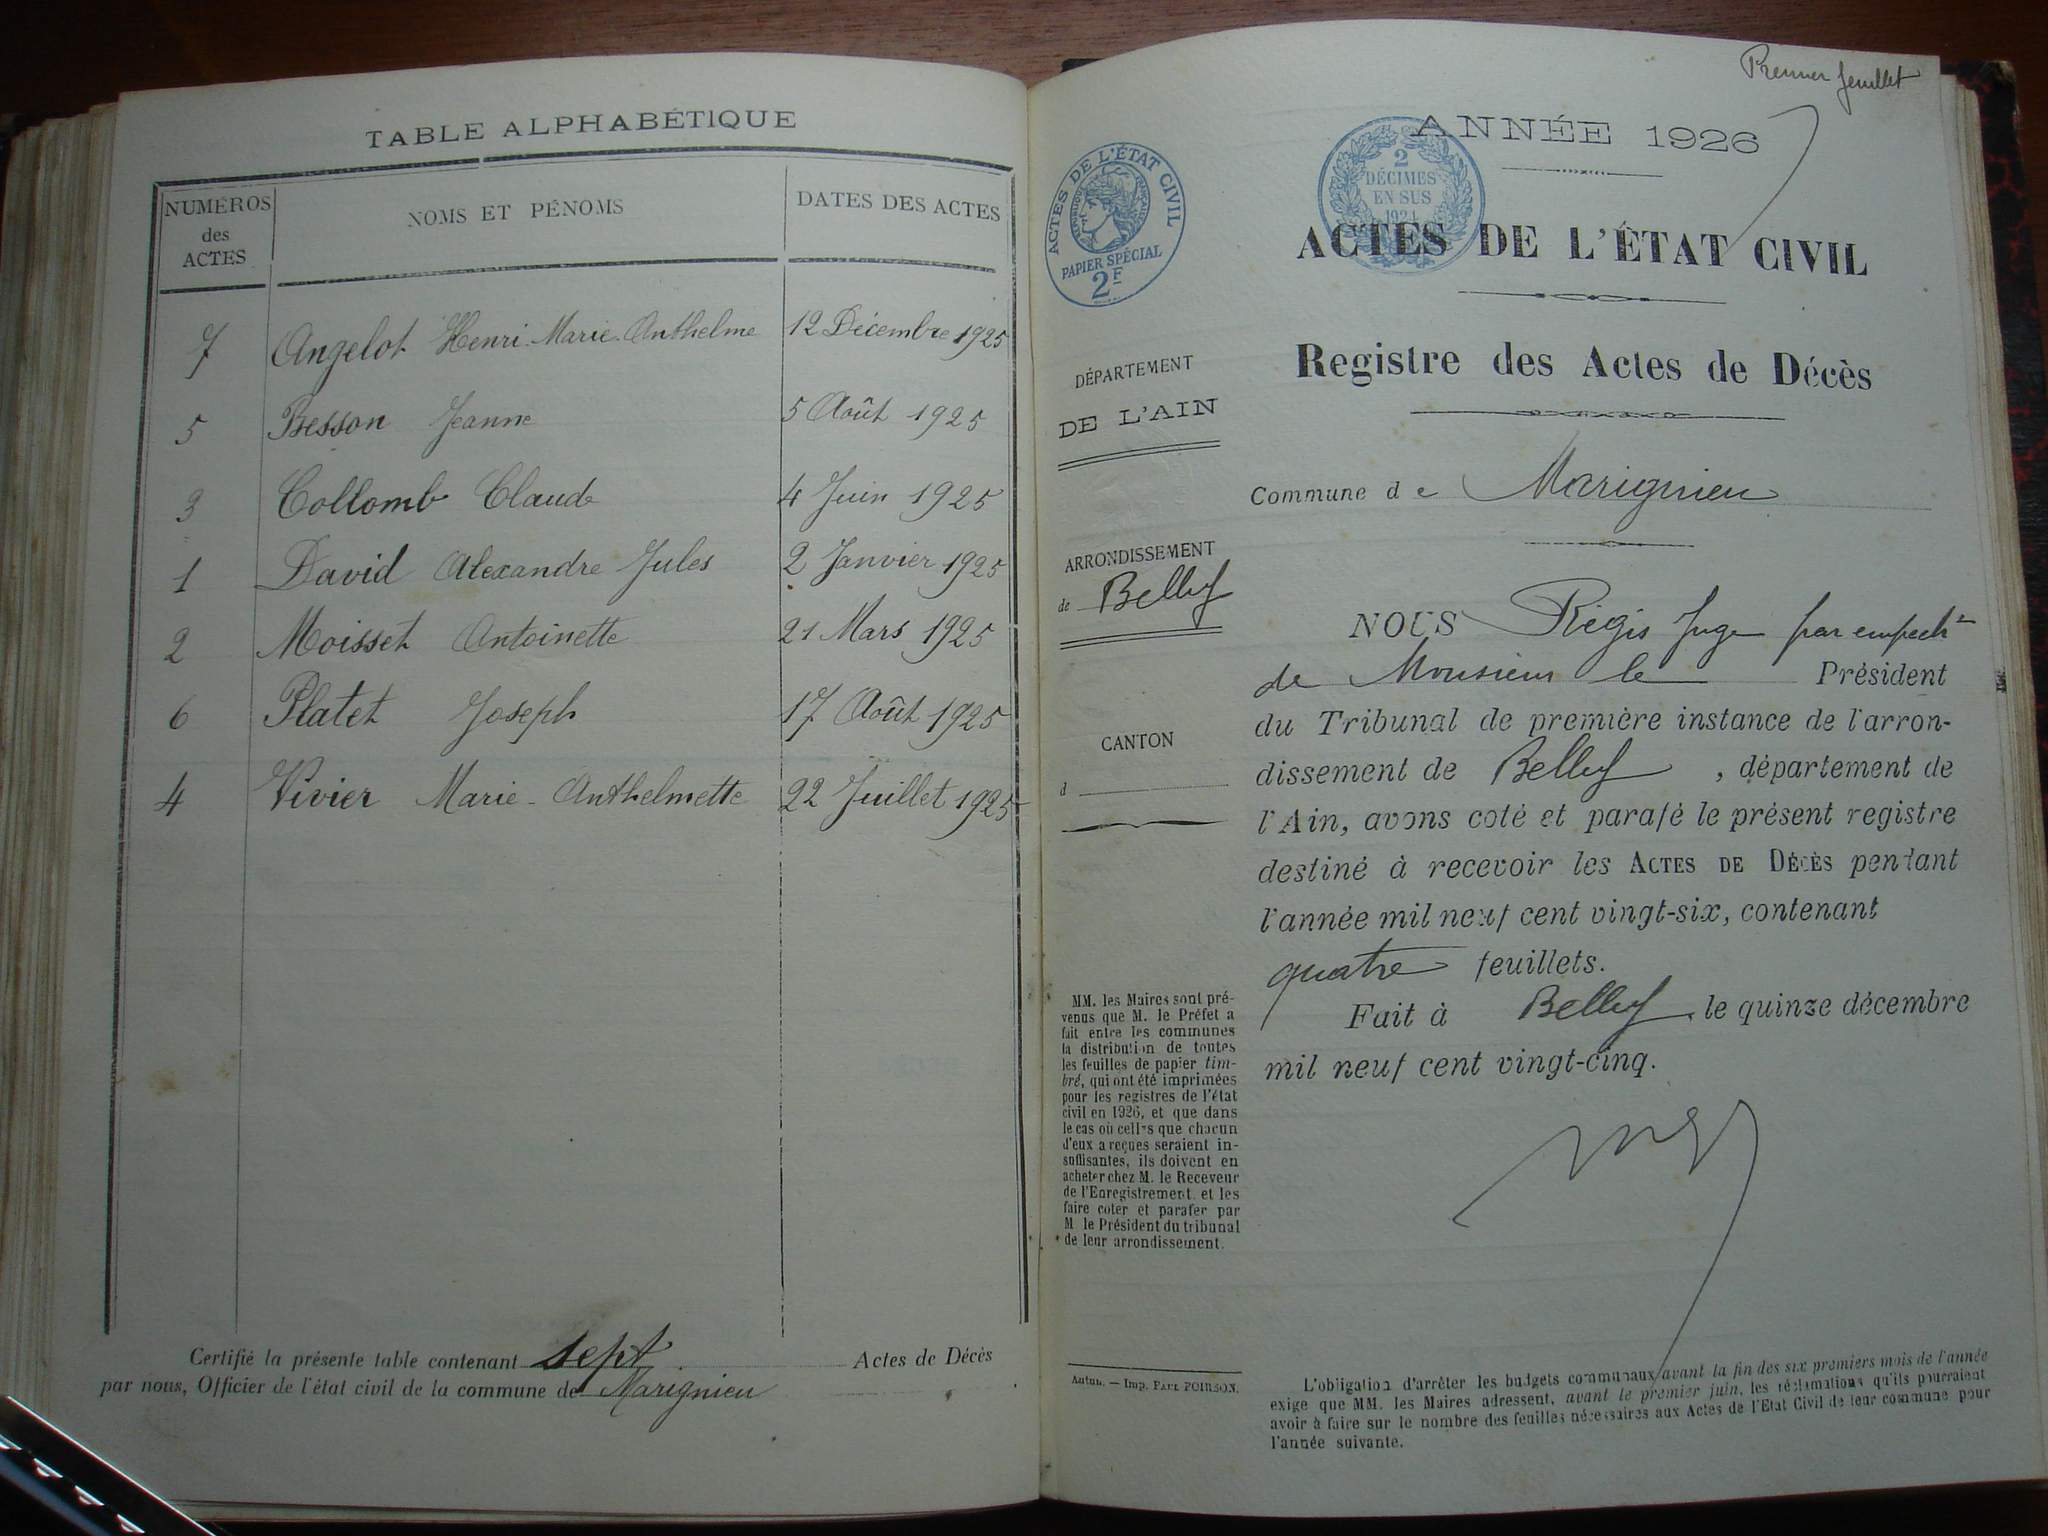 TABLE ALPHABÉTIQUE
NUMÉROS des ACTES
NOMS ET PÉNOMS
DATES DES ACTES
7 Angelot Henri-Marie-Anthelme 12 Décembre 1925
5 Besson Jeanne 5 Août 1925
3 Collomb Claude 4 Juin 1925
1 David Alexandre Jules 2 Janvier 1925
2 Moisset Antoinette 21 Mars 1925
6 Platet Joseph 17 Août 1925
4 Vivier Marie-Anthelmette 22 Juillet 1925
Certifié la présente table contenant sept Actes de Décès
par nous, Officier de l'état civil de la commune de Marignieu
Premier feuillet
ANNÉE 1926
ACTES DE L'ÉTAT CIVIL
PAPIER SPÉCIAL
2F
2
DÉCIMES
EN SUS
ACTES DE L'ÉTAT CIVIL
Registre des Actes de Décès
DÉPARTEMENT
DE L'AIN
Commune de Marignieu
ARRONDISSEMENT
de Belley
CANTON
d
NOUS Régis Juge par empecht
de Monsieur le Président
du Tribunal de première instance de l'arron-
dissement de Belley, département de
l'Ain, avons coté et parafé le présent registre
destiné à recevoir les ACTES DE DÉCÈS pendant
l'année mil neuf cent vingt-six, contenant
quatre feuillets.
Fait à Belley, le quinze décembre
mil neuf cent vingt-cinq.
MM. les Maires sont pré-
venus que M. le Préfet a
fait entre les communes
la distribution de toutes
les feuilles de papier tim-
bré, qui ont été imprimées
pour les registres de l'état
civil en 1926, et que dans
le cas où celles que chacun
d'eux a reçues seraient in-
suffisantes, ils doivent en
acheter chez M. le Receveur
de l'Enregistrement, et les
faire coter et parafer par
M le Président du tribunal
de leur arrondissement.
Autun. — Imp. PAUL POIRSON.
L'obligation d'arrêter les budgets communaux avant la fin des six premiers mois de l'année
exige que MM. les Maires adressent, avant le premier juin, les réclamations qu'ils pourraient
avoir à faire sur le nombre des feuilles nécessaires aux Actes de l'Etat Civil de leur commune pour
l'année suivante.